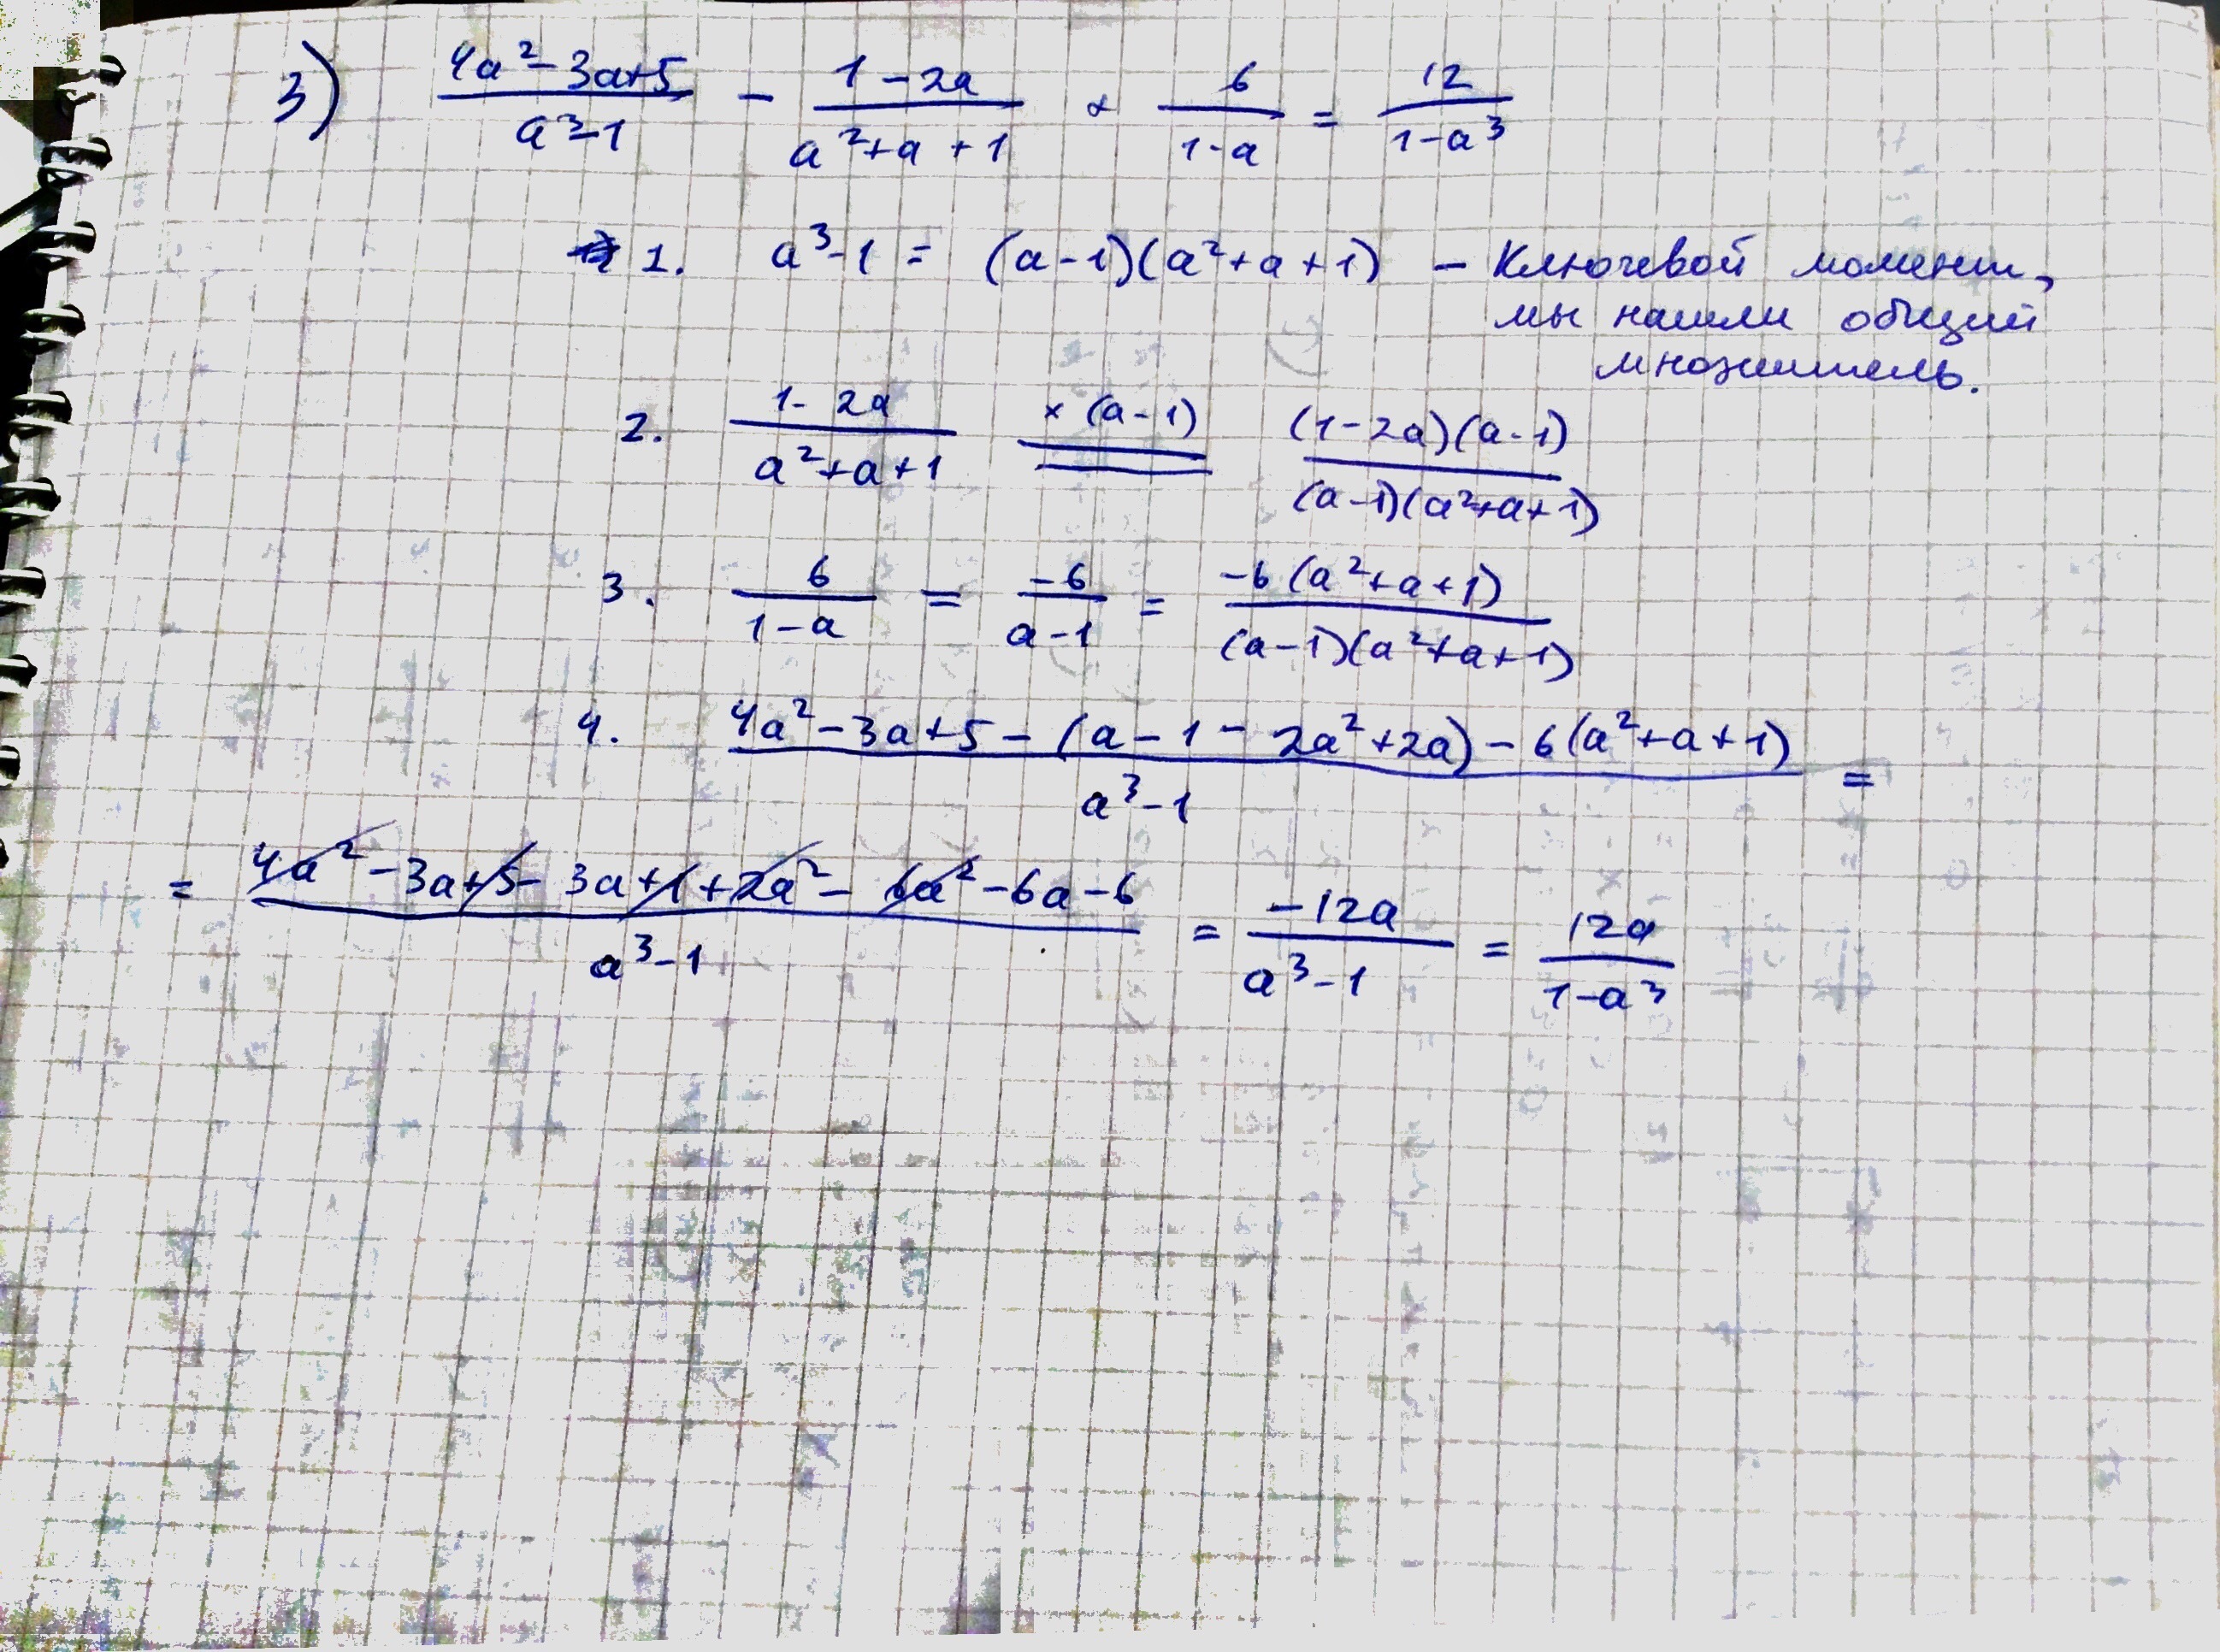 3) (4a²-3a+5)/(a³-1) - (1-2a)/(a²+a+1) + 6/(1-a) = 12/(1-a³)
1. a³-1 = (a-1)(a²+a+1) - Ключевой момент,
мы нашли общий
множитель.
2. (1-2a)/(a²+a+1) × (a-1) = ((1-2a)(a-1))/((a-1)(a²+a+1))
3. 6/(1-a) = -6/(a-1) = (-6(a²+a+1))/((a-1)(a²+a+1))
4. (4a²-3a+5-(a-1-2a²+2a)-6(a²+a+1))/(a³-1) =
= (4a²-3a+5-3a+1+2a²-6a²-6a-6)/(a³-1) = -12a/(a³-1) = 12a/(1-a³)